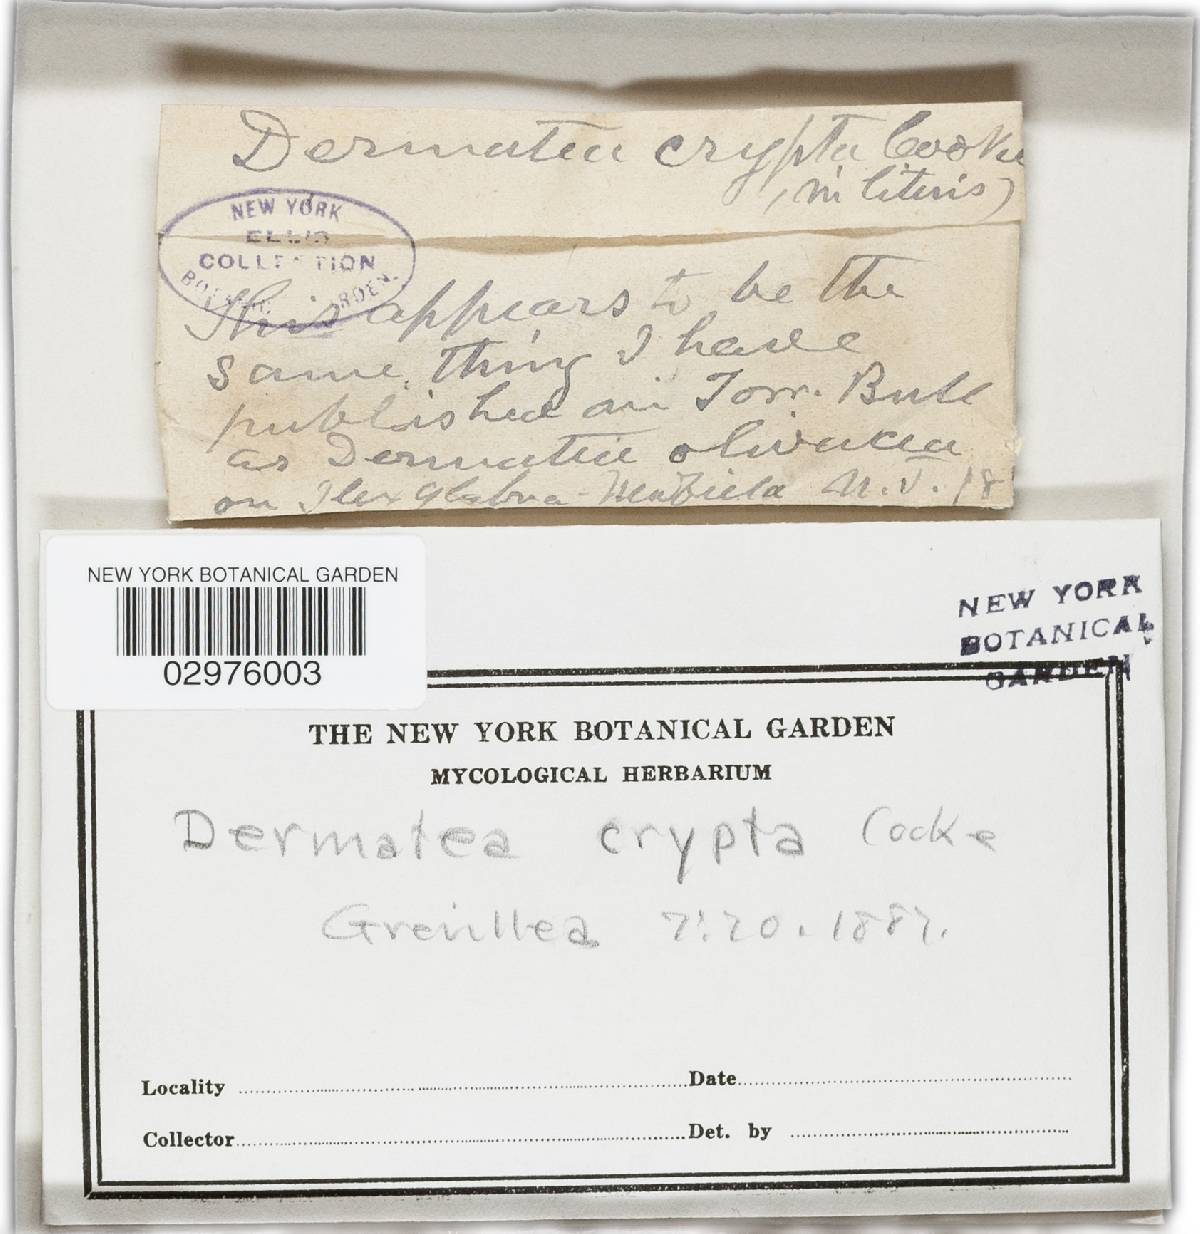 Dermatea crypta Cooke
(in literis)
NEW YORK
ELLIS
COLLECTION
BOTANICAL GARDEN.
This appears to be the
same thing I have
published in Torr. Bull
as Dermatea olivacea
on Ilex glabra - Newfield N.J. 18
NEW YORK BOTANICAL GARDEN
02976003
NEW YORK
BOTANICAL
GARDEN
THE NEW YORK BOTANICAL GARDEN
MYCOLOGICAL HERBARIUM
Dermatea crypta Cooke
Grevillea 7:20. 1887.
Locality Date
Collector Det. by